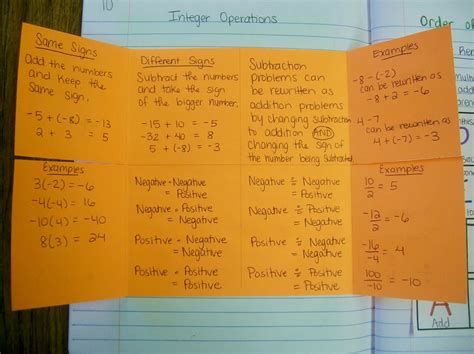 10
Integer Operations
Order of
Same Signs
Add the numbers
and keep the
same sign.
-5 + (-8) = -13
2 + 3 = 5
Different Signs
Subtract the numbers
and take the sign
of the bigger number.
-15 + 10 = -5
-32 + 40 = 8
5 + (-8) = -3
Subtraction
problems can
be rewritten as
addition problems
by changing subtraction
to addition AND
changing the sign of
the number being subtracted.
Examples
-8 - (-2)
can be rewritten as
-8 + 2 = -6
4 - 7
can be rewritten as
4 + (-7) = -3
Examples
3(-2) = -6
-4(-4) = 16
-10(4) = -40
8(3) = 24
Negative · Negative
= Positive
Negative · Positive
= Negative
Positive · Negative
= Negative
Positive · Positive
= Positive
Negative ÷ Negative
= Positive
Negative ÷ Positive
= Negative
Positive ÷ Negative
= Negative
Positive ÷ Positive
= Positive
Examples
10/2 = 5
-12/2 = -6
-16/-4 = 4
100/-10 = -10
A
Add